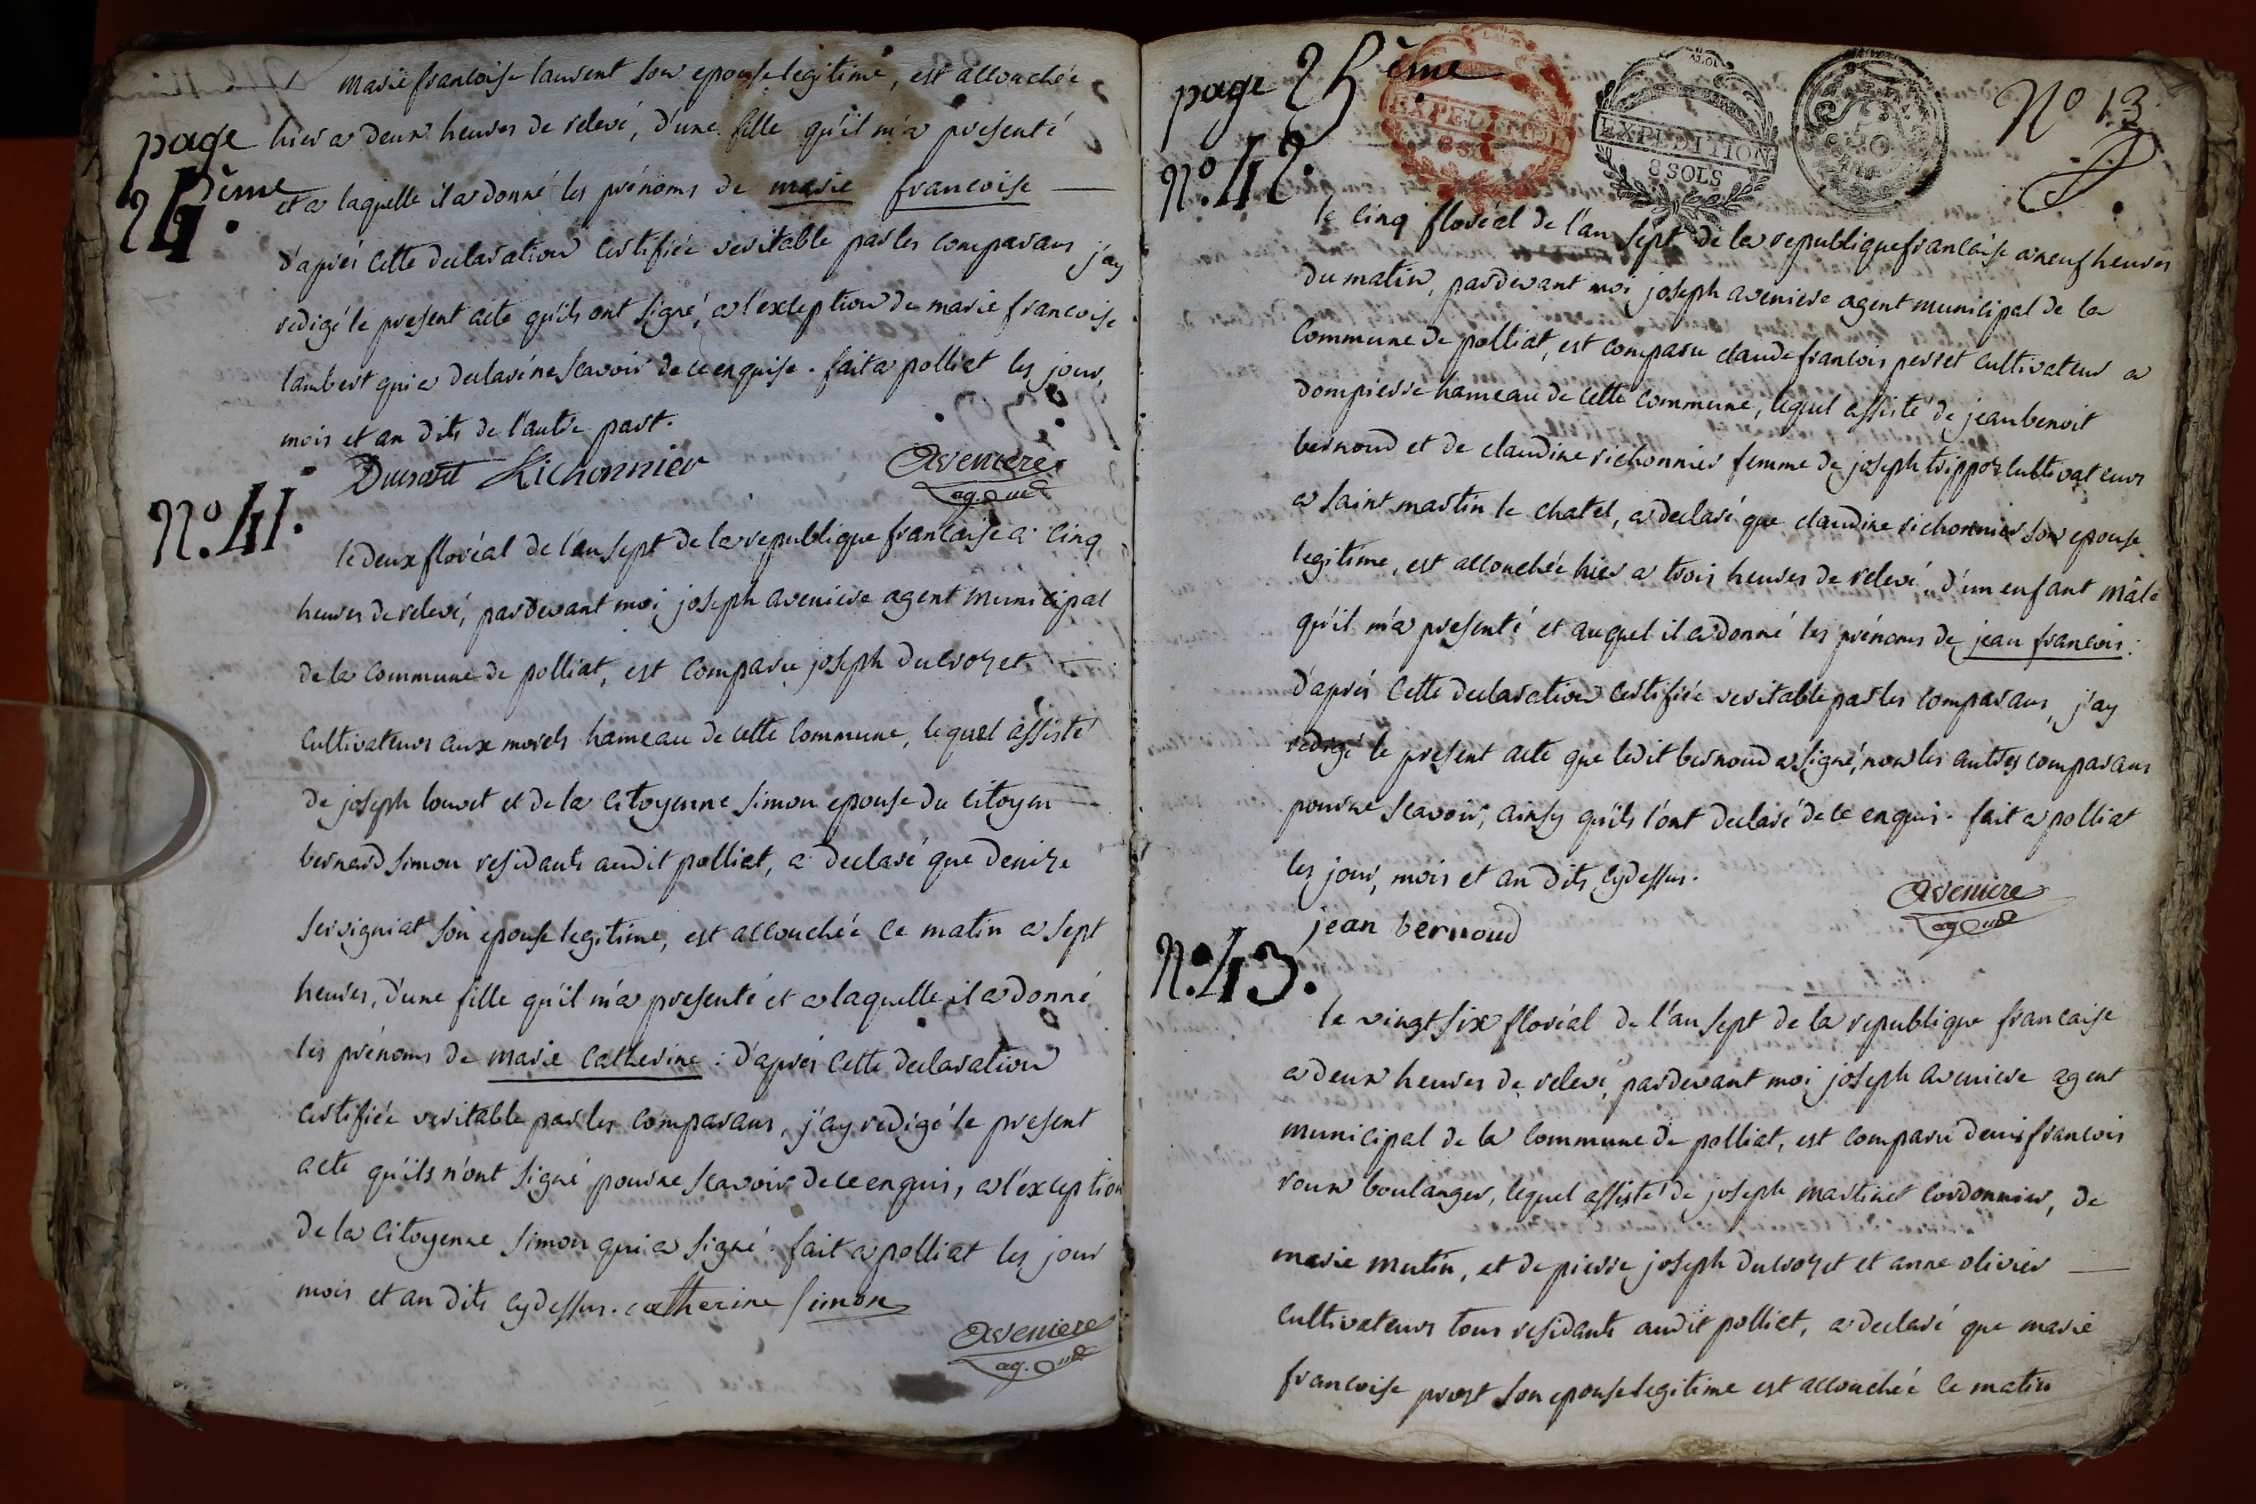 marie francoise laurent son epouse legitime, est accouchée
page
24ème.
hier a deux heures de relevé, d'une fille qu'il m'a presenté
et a laquelle il a donné les prénoms de marie francoise
d'aprés cette declaration certifiée veritable par les comparans j'ay
redigé le present acte qu'ils ont signé, a l'exception de marie francoise
lambert qui a declaré ne scavoir de ce enquise. fait a polliat les jour,
mois et an dits de l'autre part.
Richonnier
Aveniere
ag. mal
N.o 41.
le deux floréal de l'an sept de la republique francaise a cinq
heures de relevé, pardevant moi joseph aveniere agent municipal
de la commune de polliat, est comparu joseph ducrozet
cultivateurs aux morels hameau de cette commune, lequel assisté
de joseph louvet et de la citoyenne simon epouse du citoyen
bernard simon residants audit polliat, a declaré que denize
servigniat son epouse legitime, est accouchée ce matin a sept
heures, d'une fille qu'il m'a presenté et a laquelle il a donné
les prénoms de marie catherine : d'aprés cette declaration
certifiée veritable par les comparans, j'ay redigé le present
acte qu'ils n'ont signé pour ne scavoir de ce enquis, a l'exception
de la citoyenne simon qui a signé. fait a polliat les jour
mois et an dits cydessus. catherine simon
Aveniere
ag. mal
page 25ème
EXPEDITION
8 SOLS
EXPEDITION
8 SOLS
50
No 13
N.o 42.
le cinq floréal de l'an sept de la republique francaise a neuf heures
du matin, pardevant moi joseph aveniere agent municipal de la
commune de polliat, est comparu claude francois perret cultivateur a
dompierre hameau de cette commune, lequel assisté de jean benoit
bernoud et de claudine richonnier femme de joseph trippoz cultivateurs
a saint martin le chatel, a declaré que claudine richonnier son epouse
legitime, est accouchée hier a trois heures de relevé, d'un enfant mâle
qu'il m'a presenté et auquel il a donné les prénoms de jean francois :
d'aprés cette declaration certifiée veritable par les comparans, j'ay
redigé le present acte que ledit bernoud a signé, non les autres comparans
pour ne scavoir, ainsy qu'ils l'ont declaré de ce enquis. fait a polliat
les jour, mois et an dits cydessus.
jean bernoud
Aveniere
ag. mal
N.o 43.
le vingt six floréal de l'an sept de la republique francaise
a deux heures de relevé, pardevant moi joseph aveniere agent
municipal de la commune de polliat, est comparu denis francois
roux boulanger, lequel assisté de joseph martinet cordonnier, de
marie mutin, et de pierre joseph ducrozet et anne olivier
cultivateurs tous residants audit polliat, a declaré que marie
francoise prost son epouse legitime est accouchée ce matin